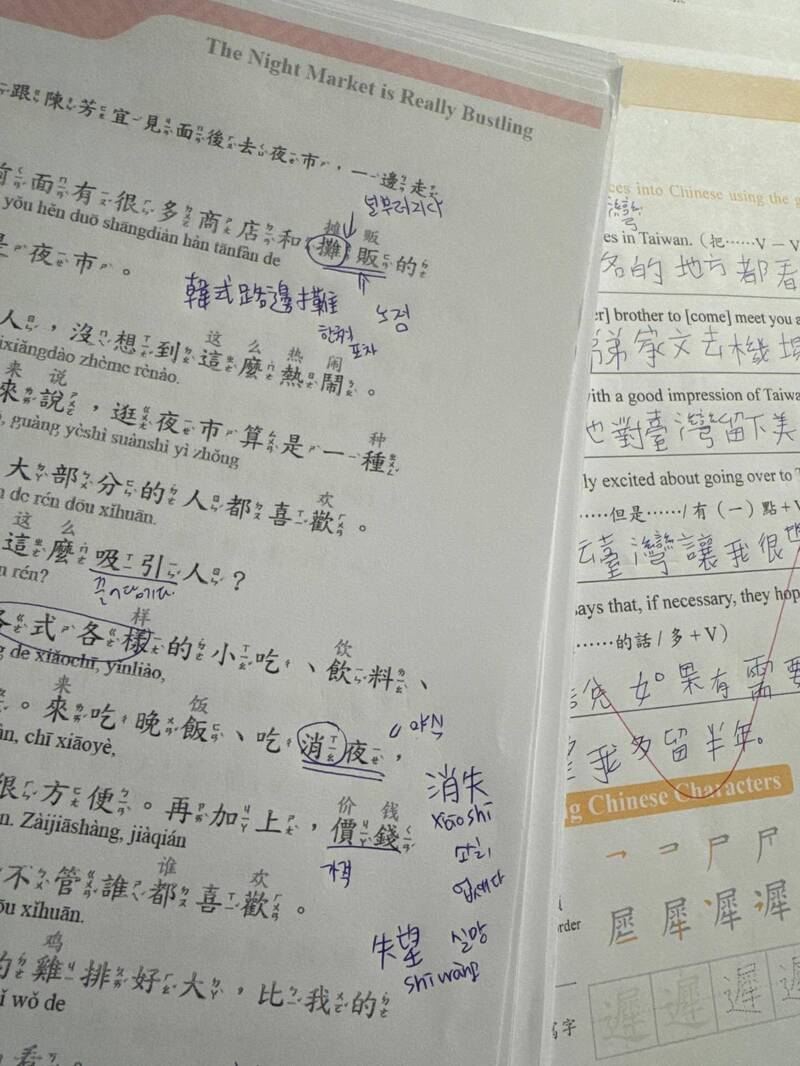 The Night Market is Really Bustling
跟陳芳宜見面後去夜市,一邊走
널부러지다
摊 贩
前面有很多商店和攤販的
yǒu hěn duō shāngdiàn hàn tānfàn de
是夜市。
韓式路邊攤
노점
한식
포차
这 么 热 闹
人,沒想到這麼熱鬧。
ixiǎngdào zhème rènào.
来 说 种
來說,逛夜市算是一種
guàng yèshì suànshì yì zhǒng
欢
大部分的人都喜歡。
n de rén dōu xǐhuān.
这 么
這麼吸引人?
n rén?
끌어당기다
样 饮
各式各樣的小吃、飲料、
g de xiǎochī, yǐnliào,
来 饭
。來吃晚飯、吃消夜,
야식
àn, chī xiāoyè,
消失
xiāoshī
소실
없세다
价 钱
很方便。再加上,價錢
n. Zàijiāshàng, jiàqián
가격
谁 欢
不管誰都喜歡。
ōu xǐhuān.
失望 실망
shīwàng
鸡
的雞排好大,比我的
ǐ wǒ de
看
ces into Chinese using the g
灣
es in Taiwan. (把……V一V
各的地方都看
er] brother to [come] meet you a
家文去機場
with a good impression of Taiwa
他對臺灣留下美
ly excited about going over to T
……但是……/有(一)點+V
去臺灣讓我很
says that, if necessary, they hop
……的話/多+V)
說如果有需要
我多留半年。
ng Chinese Characters
rder
遲 遲 遲 遲
寫字